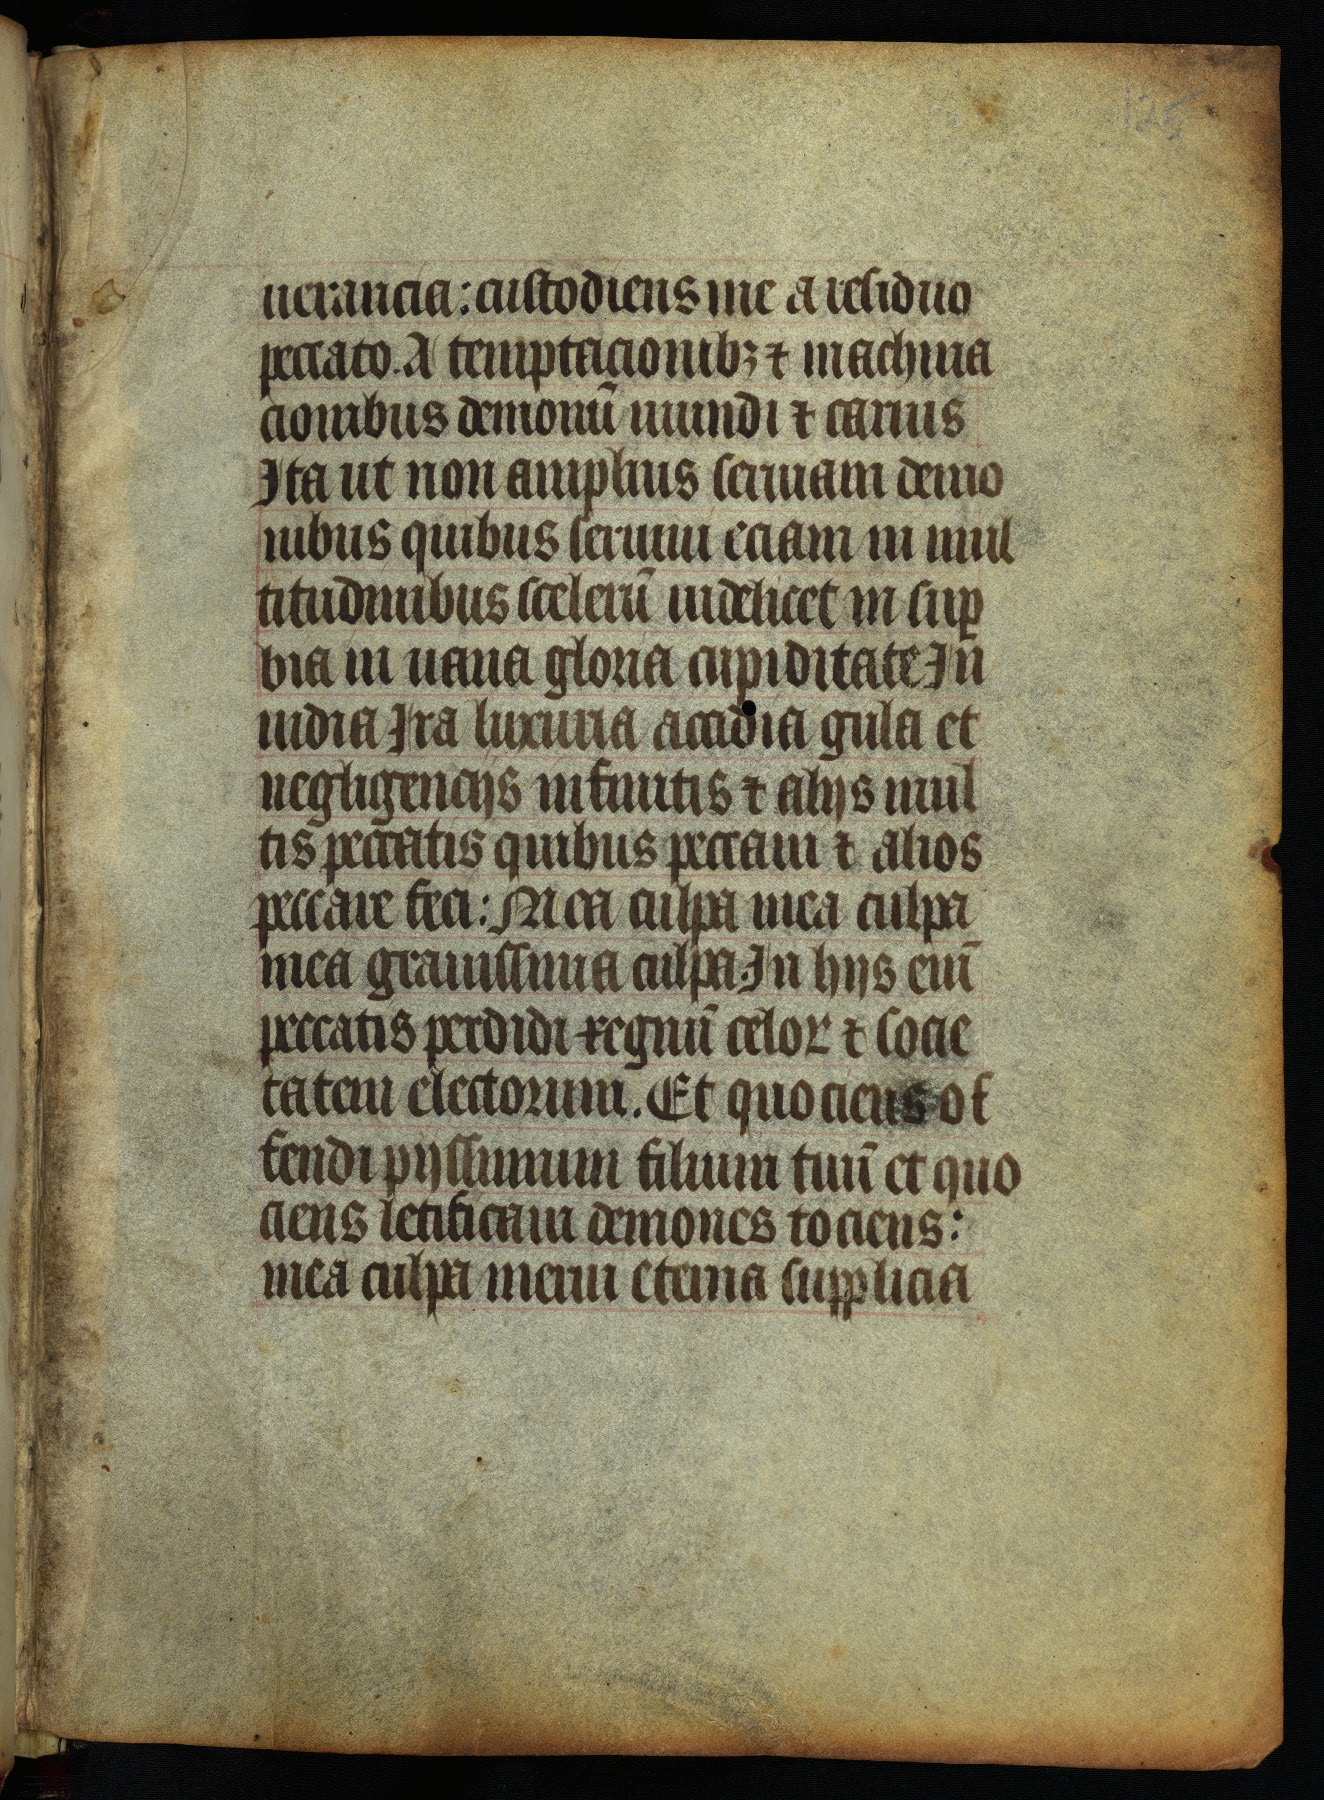 125
uerancia: custodiens me a residuo
peccato. A temptacionibꝫ ⁊ machina
cionibus demonū mundi ⁊ carnis
Ita ut non amplius seruiam demo
nibus quibus seruiui eciam in mul
titudinibus scelerū uidelicet in suꝑ
bia in uana gloria cupiditate In
uidia Ira luxuria accidia gula et
negligencijs infinitis ⁊ alijs mul
tis peccatis quibus peccaui ⁊ alios
peccare feci: Mea culpa mea culpa
mea grauissima culpa. In hijs enī
peccatis perdidi regnū celoꝝ ⁊ socie
tatem electorum. Et quociens of
fendi pijssimum filium tuū et quo
ciens letificaui demones tociens:
mea culpa merui eterna supplicia